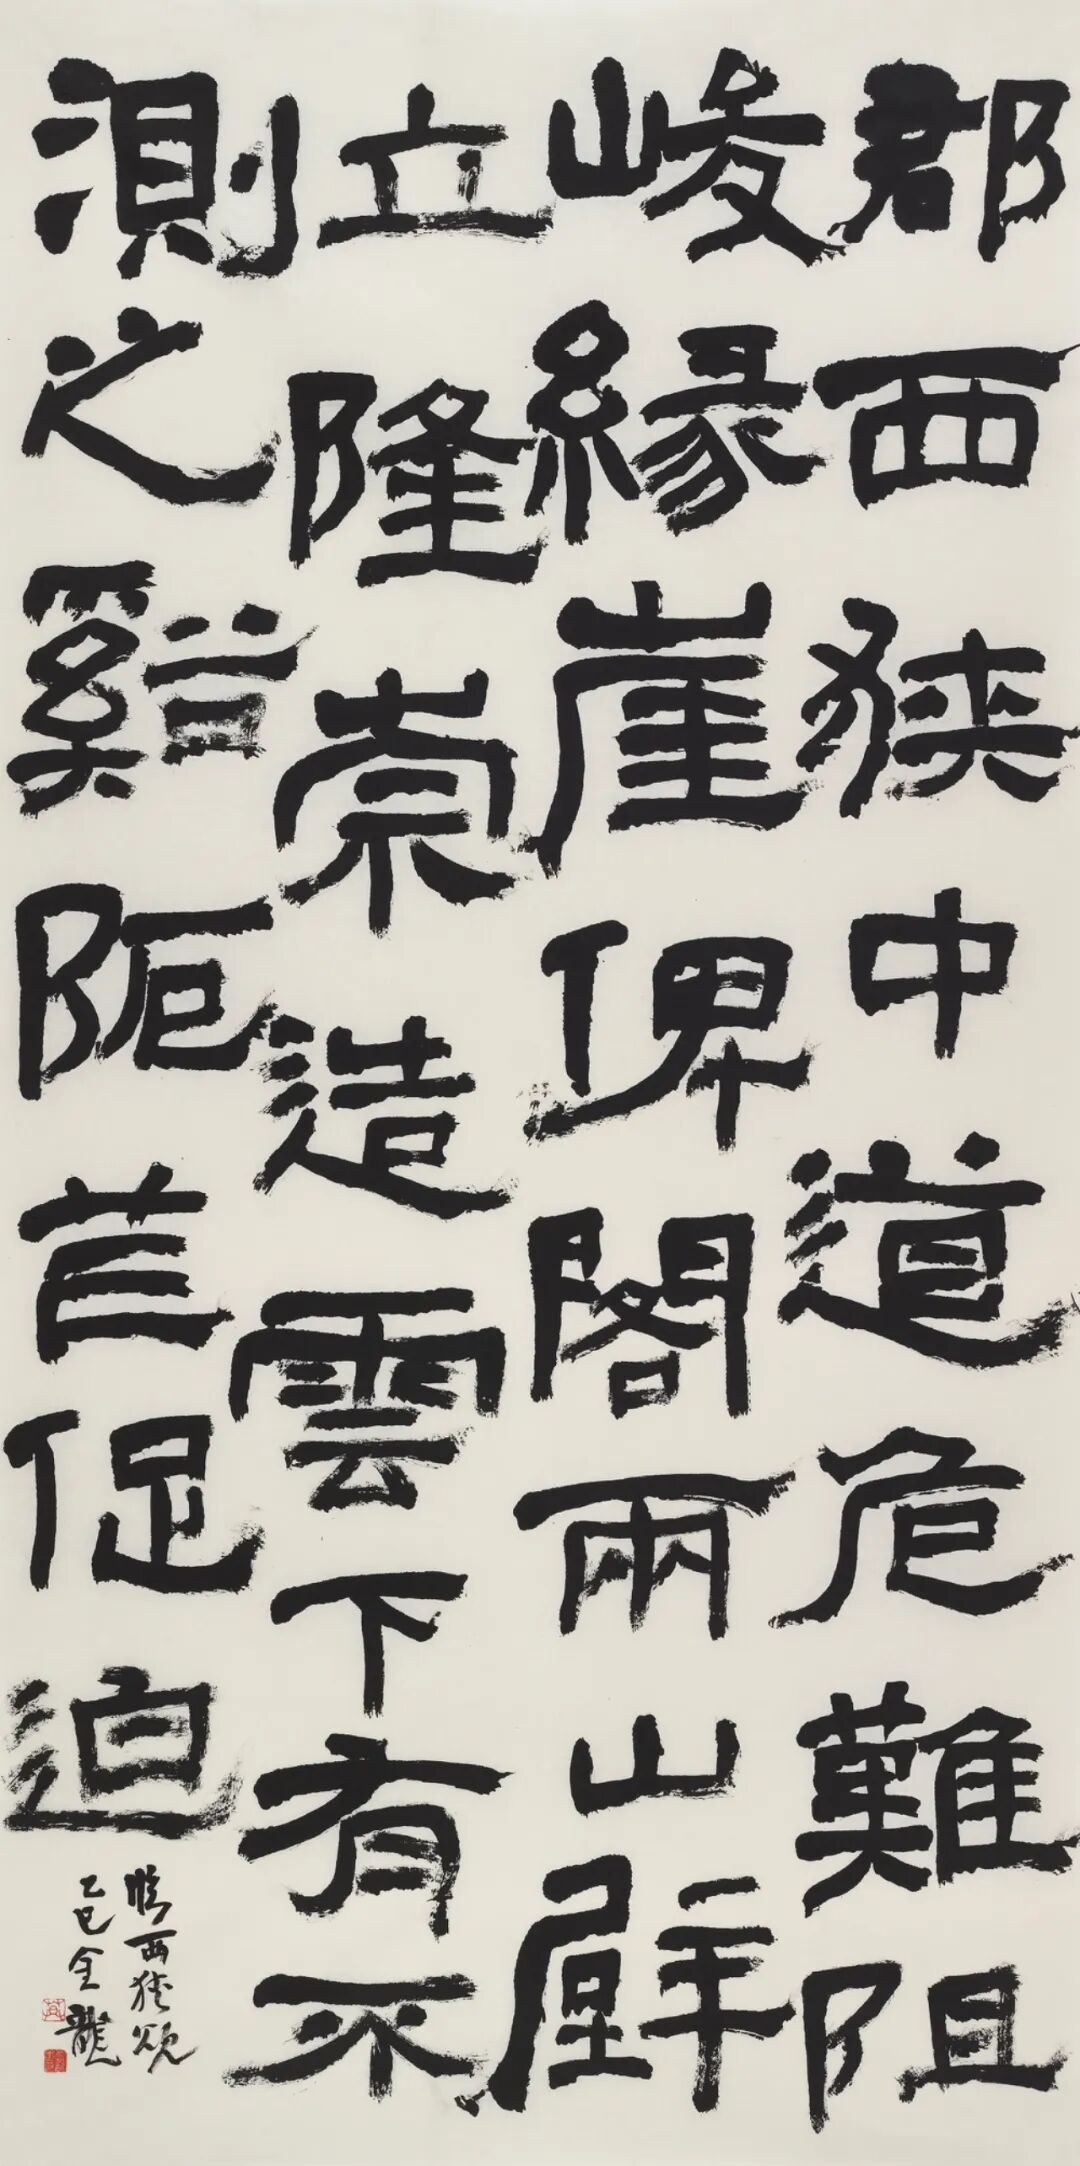 郡西狹中道危難阻
峻緣崖俾閣兩山壁
立隆崇造雲下有不
測之谿阨苲促迫
臨西狹頌
乙巳金龍